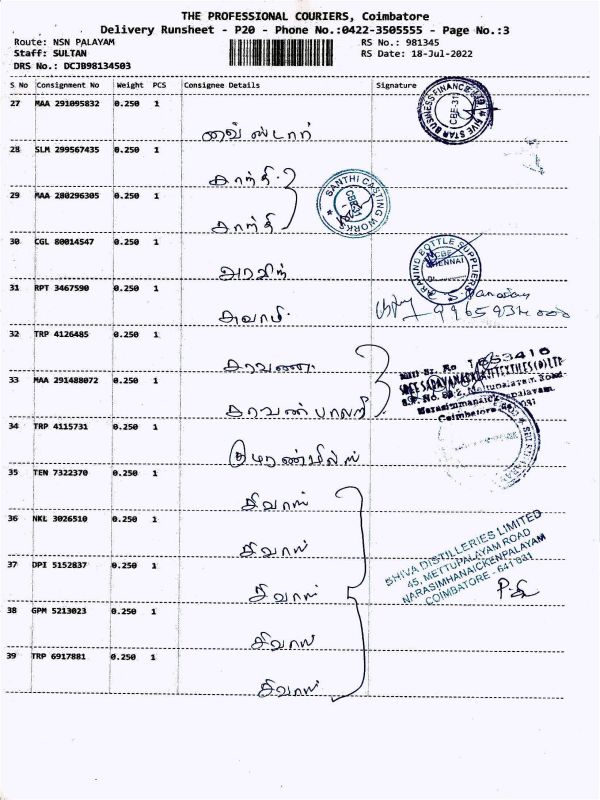 THE PROFESSIONAL COURIERS, Coimbatore
Delivery Runsheet - P20 - Phone No.:0422-3505555 - Page No.:3
Route: NSN PALAYAM RS No.: 981345
Staff: SULTAN RS Date: 18-Jul-2022
DRS No.: DCJB98134503
S No Consignment No Weight PCS Consignee Details Signature
27 MAA 291095832 0.250 1
FIVE STAR BUSINESS FINANCE CBE-31
28 SLM 299567435 0.250 1
காந்தி
29 MAA 280296305 0.250 1
SANTHI CASTING WORKS CBE-31
காந்தி
30 CGL 80014547 0.250 1
ARAVIND BOTTLE SUPPLIERS CHENNAI
31 RPT 3467590 0.250 1
32 TRP 4126485 0.250 1
சரவணா
33 MAA 291488072 0.250 1
Mettupalayam Road
Narasimmanaickenpalayam
Coimbatore
34 TRP 4115731 0.250 1
35 TEN 7322370 0.250 1
சிவாஸ்
36 NKL 3026510 0.250 1
சிவாஸ்
37 DPI 5152837 0.250 1
SHIVA DISTILLERIES LIMITED
45, METTUPALAYAM ROAD
NARASIMHANAICKENPALAYAM
COIMBATORE - 641 031
சிவாஸ்
38 GPM 5213023 0.250 1
சிவாஸ்
39 TRP 6917881 0.250 1
சிவாஸ்